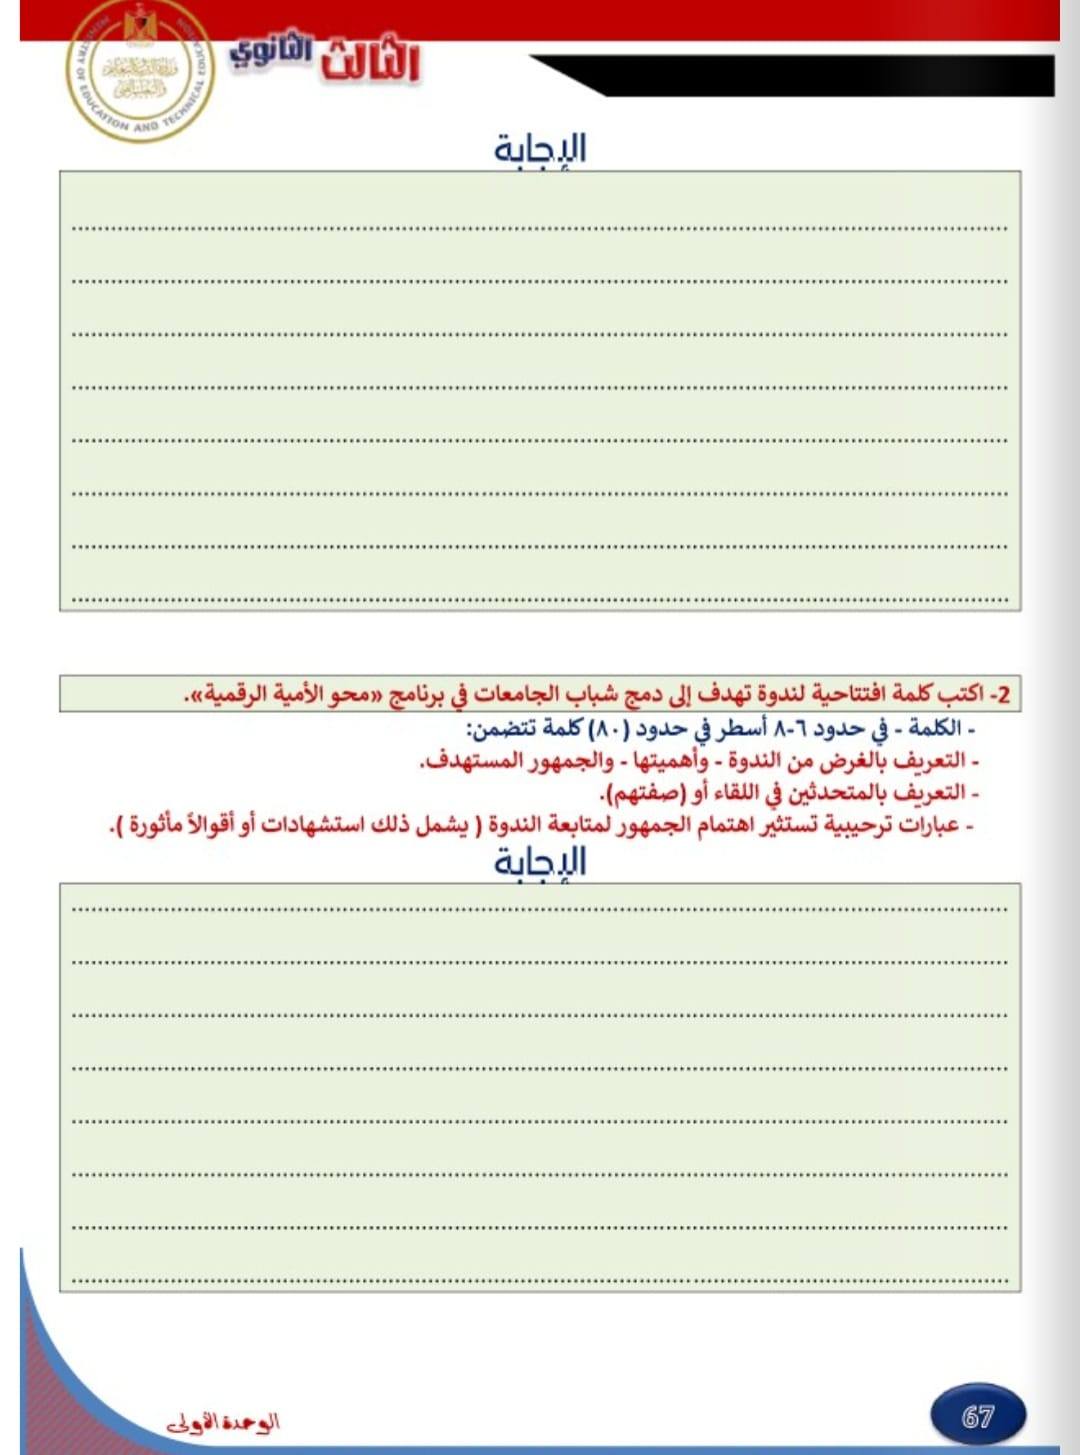 MINISTRY OF EDUCATION AND TECHNICAL EDUCATION
الثالث الثانوي
الإجابة
2- اكتب كلمة افتتاحية لندوة تهدف إلى دمج شباب الجامعات في برنامج «محو الأمية الرقمية».
- الكلمة - في حدود ٦-٨ أسطر في حدود (٨٠) كلمة تتضمن:
- التعريف بالغرض من الندوة - وأهميتها - والجمهور المستهدف.
- التعريف بالمتحدثين في اللقاء أو (صفتهم).
- عبارات ترحيبية تستثير اهتمام الجمهور لمتابعة الندوة ( يشمل ذلك استشهادات أو أقوالاً مأثورة ).
الإجابة
الوحدة الأولى
67